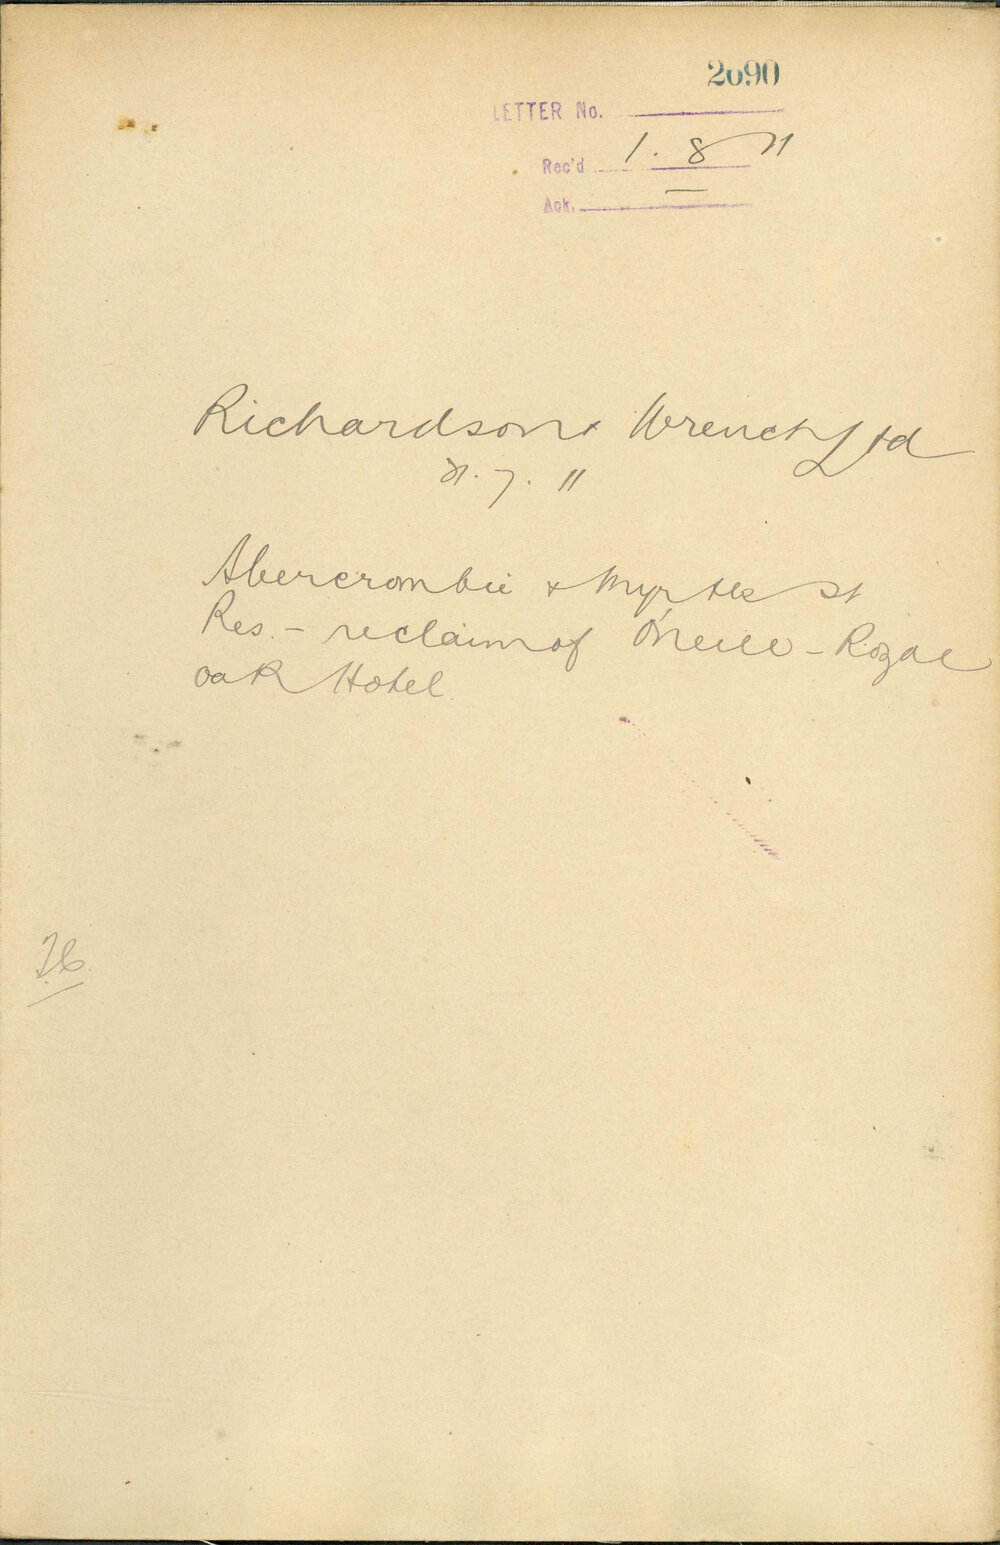 2090
LETTER No.
Rec'd 1. 8 11
Ack. —
Richardson & Wrench Ltd
31. 7. 11
Abercrombie & Myrtle St
Res. - re claim of O'Neill - Royal
Oak Hotel.